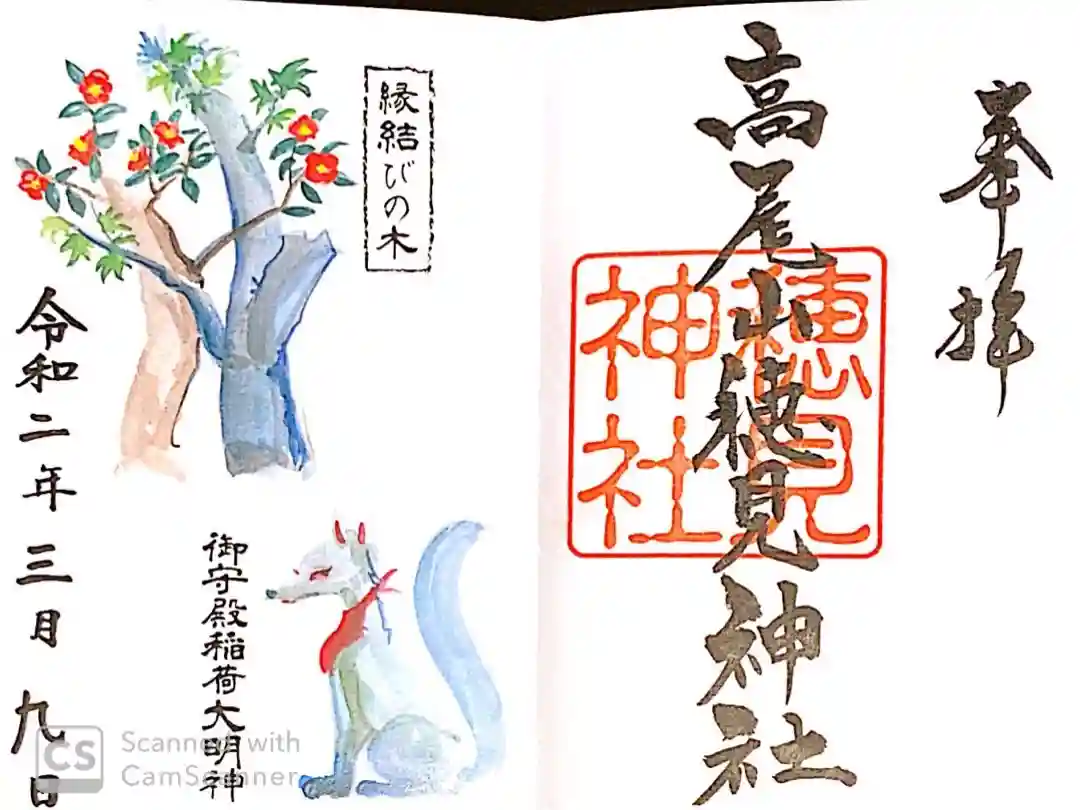 奉拝
高尾山穂見神社
穂見
神社
縁結びの木
御守殿稲荷大明神
令和二年三月九日
CS Scanned with
CamScanner